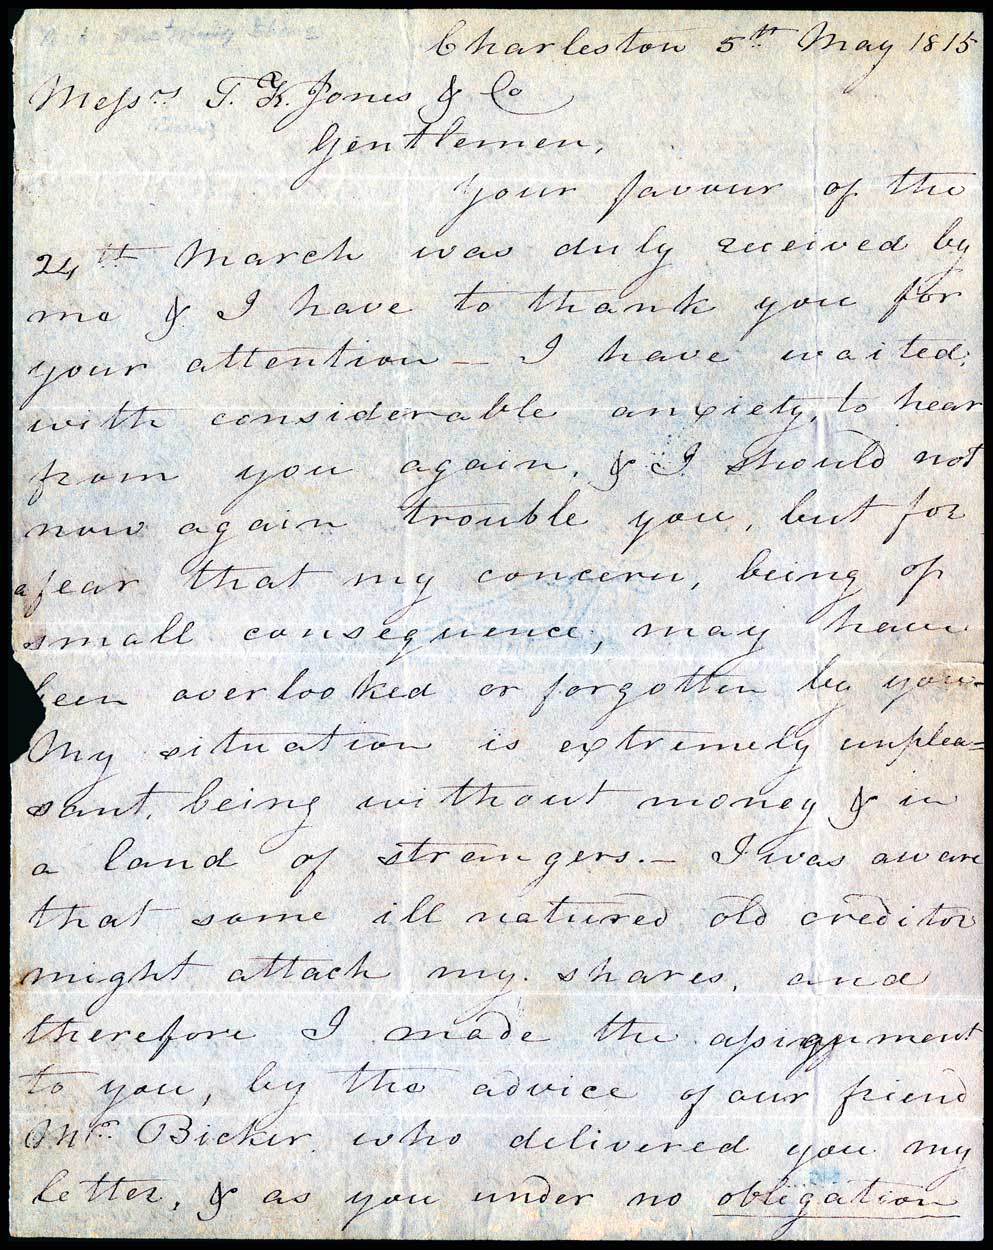 Charleston 5th May 1815
Messrs T. K. Jones & Co
Gentlemen,
Your favour of the
24th March was duly received by
me & I have to thank you for
your attention – I have waited
with considerable anxiety, to hear
from you again, & I should not
now again trouble you, but for
a fear that my concern, being of
small consequence, may have
been overlooked or forgotten by you–
My situation is extremely unplea=
sant, being without money & in
a land of strangers.– I was aware
that some ill natured old creditor
might attach my shares, and
therefore I made the assignment
to you, by the advice of our friend
Mr. Bicker who delivered you my
letter, & as you under no obligation